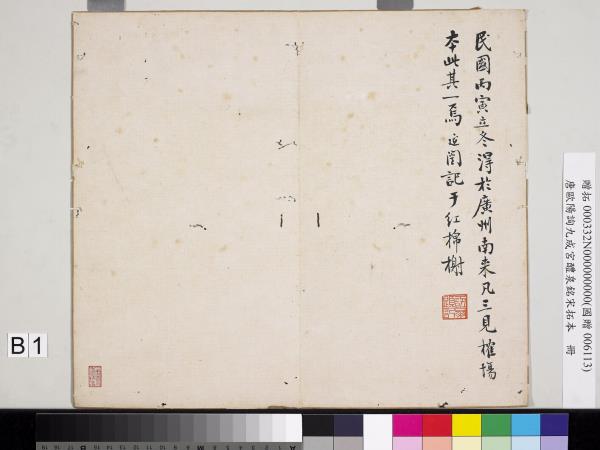 民國丙寅立冬淂於廣州南来凡三見榷場
本此其一焉 記于红棉榭
贈拓 000332N000000000(國贈 006113)
唐歐陽詢九成宮醴泉銘宋拓本 冊
B 1